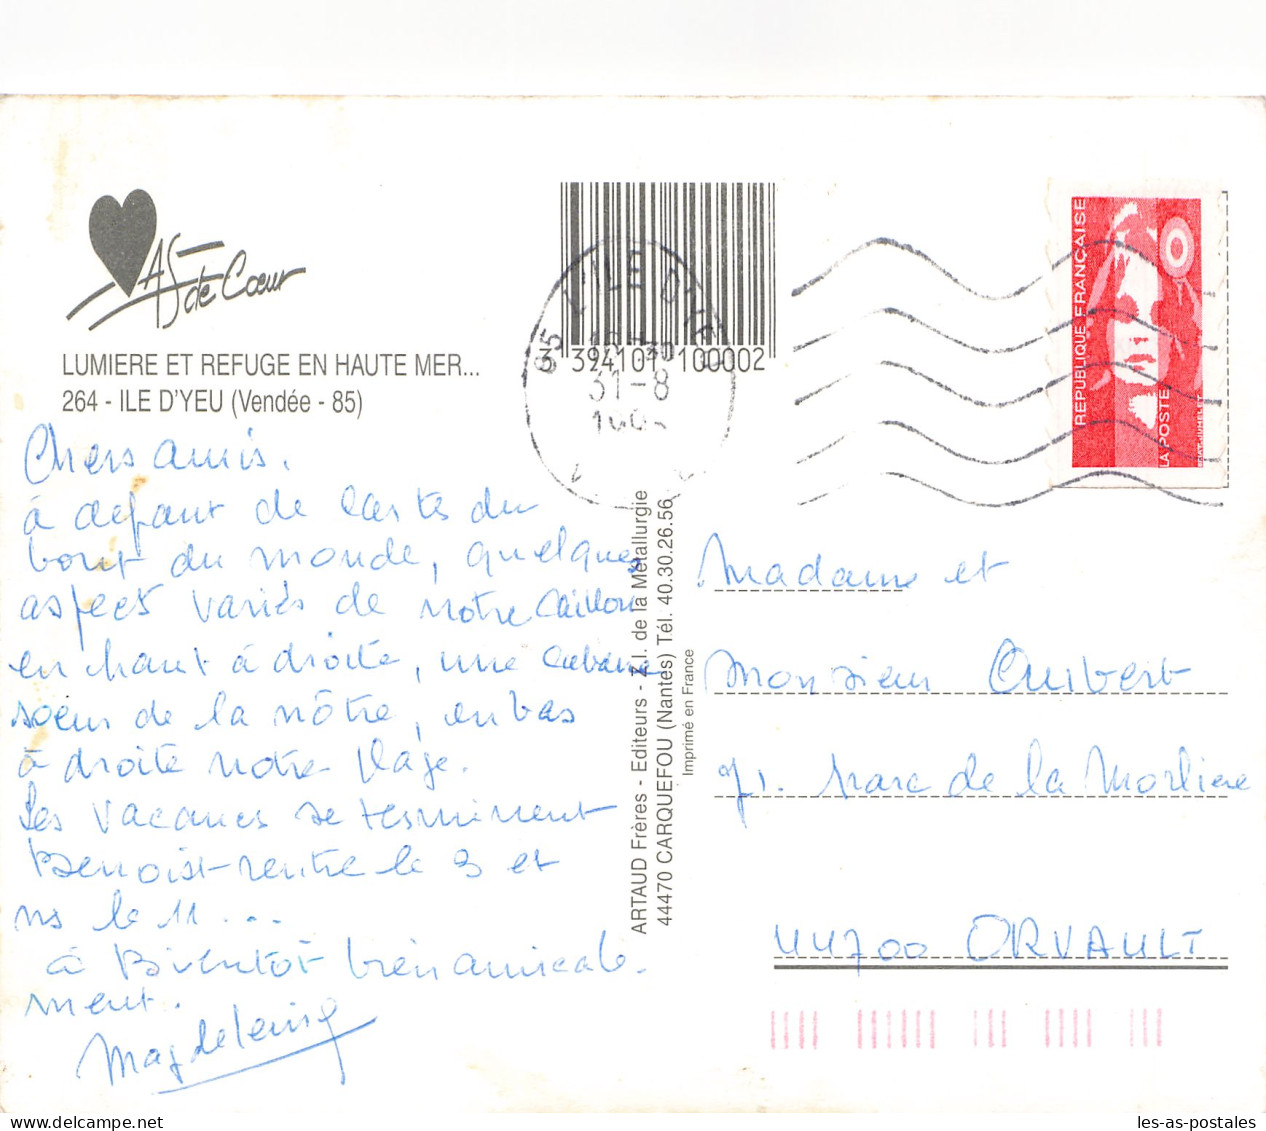 As de Cœur
LUMIERE ET REFUGE EN HAUTE MER...
264 - ILE D'YEU (Vendée - 85)
Chers amis.
à défaut de cartes du
bout du monde, quelques
aspects variés de notre Caillou
en haut à droite, une cabane
soeur de la nôtre, en bas
à droite notre plage.
Les vacances se terminent
Benoist rentre le 3 et
ns le 11...
à Bientôt bien amicale-
ment.
Magdeleine
3 394101 100002
85 L'ILE D'YEU
31-8
ARTAUD Frères - Editeurs - Z.I. de la Métallurgie
44470 CARQUEFOU (Nantes) Tél. 40.30.26.56
Imprimé en France
REPUBLIQUE FRANÇAISE
LA POSTE
Madame et
Monsieur
de la Morlière
44700 ORVAULT
les-as-postales